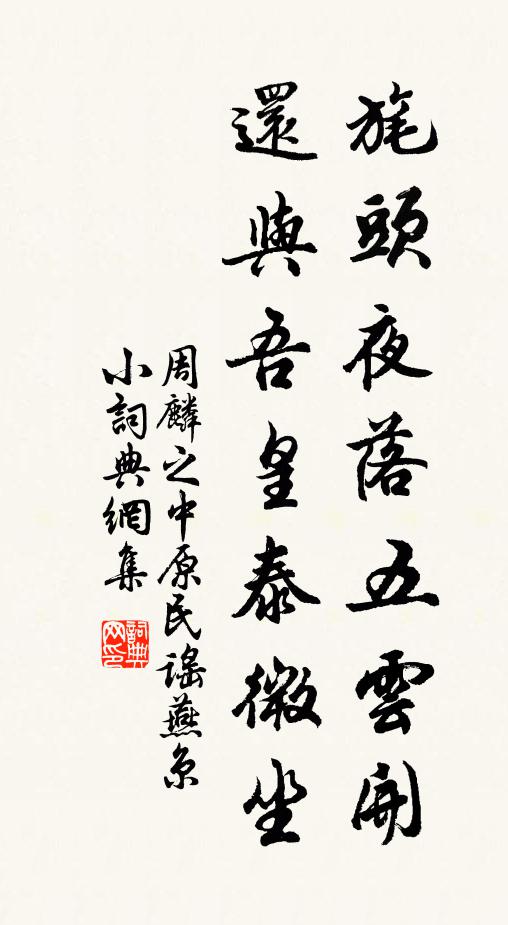 旄頭夜落五雲開
還與吾皇泰微坐
周麟之中原民謠燕京
小詞典網集
詞典網印